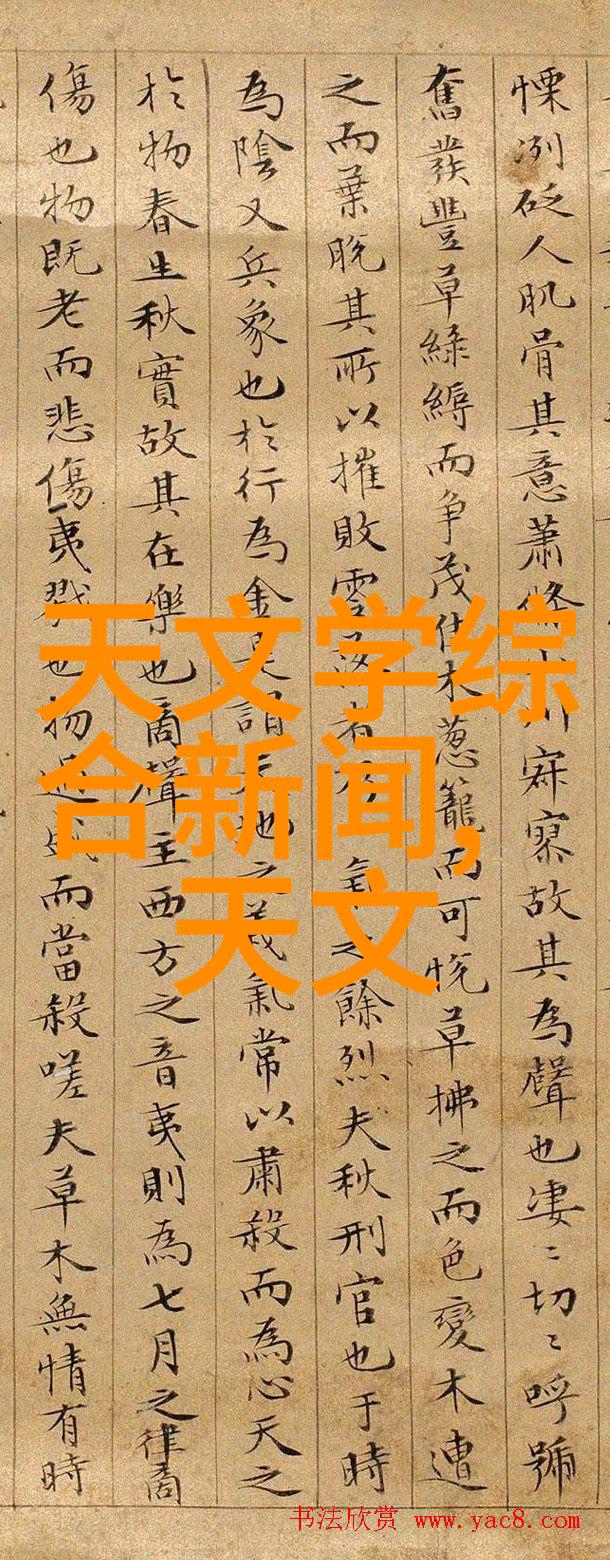 慄冽砭人肌骨其意蕭條山川寂寥故其為聲也淒〻切〻呼號
奮發豐草綠縟而争茂佳木葱籠而可悅草拂之而色變木遭
之而葉脫其所以摧敗零落者乃氣之餘烈夫秋刑官也于時
為陰又兵象也於行為金是謂天地之義氣常以肅殺而為心天之
於物春生秋實故其在樂也商聲主西方之音夷則為七月之律商
傷也物既老而悲傷夷戮也物過盛而當殺嗟夫草木無情有時
天文学综
合新闻,
天文
书法欣赏 www.yac8.com